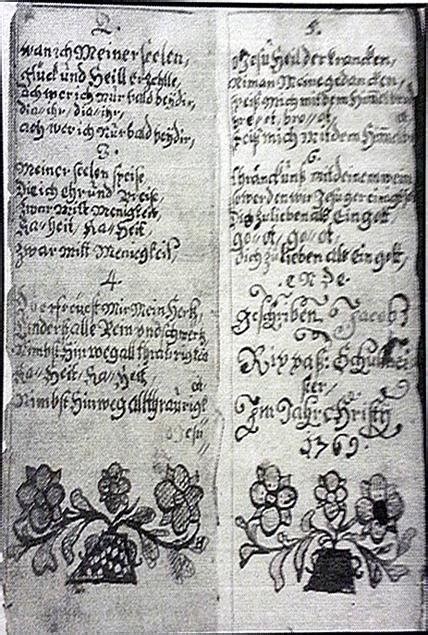 2.
wan ich Meiner seelen,
glück und Heill erzehle,
ach wer ich Nur bald beÿ dir,
dia//ihr, dia//ihr,
ach wer ich Nur bald beÿ dir,
3.
Meiner seelen speise
Die ich Ehr und Preise
Zwar Mitt Menigkeit,
Ka//Heit, Ka//Heit
Zwar mitt Menigkeit,
4.
erfreuest Mir Mein Herk,
Linderst alle Pein und schmerk,
Nimbst Hinweg all thraurigkeit
Ka//Heit, Ka//Heit
Nimbst Hinweg all thraurigk
Jesu
5.
Jesu Heil der krancken,
Niman Meine gedancken,
speiß Mich mit dem Himelbrot
bro//ot,
speiß mich Mit dem Himelbrot
6.
thränck unß mit deinem wein
werden wir
dich zu lieben alß Ein gott,
go//ot, go//ot,
dich zu lieben alß Ein gott,
Ende.
Geschriben Jacob
Rippaß: Schullmei
ster//
Im Jahr Christÿ
1769.